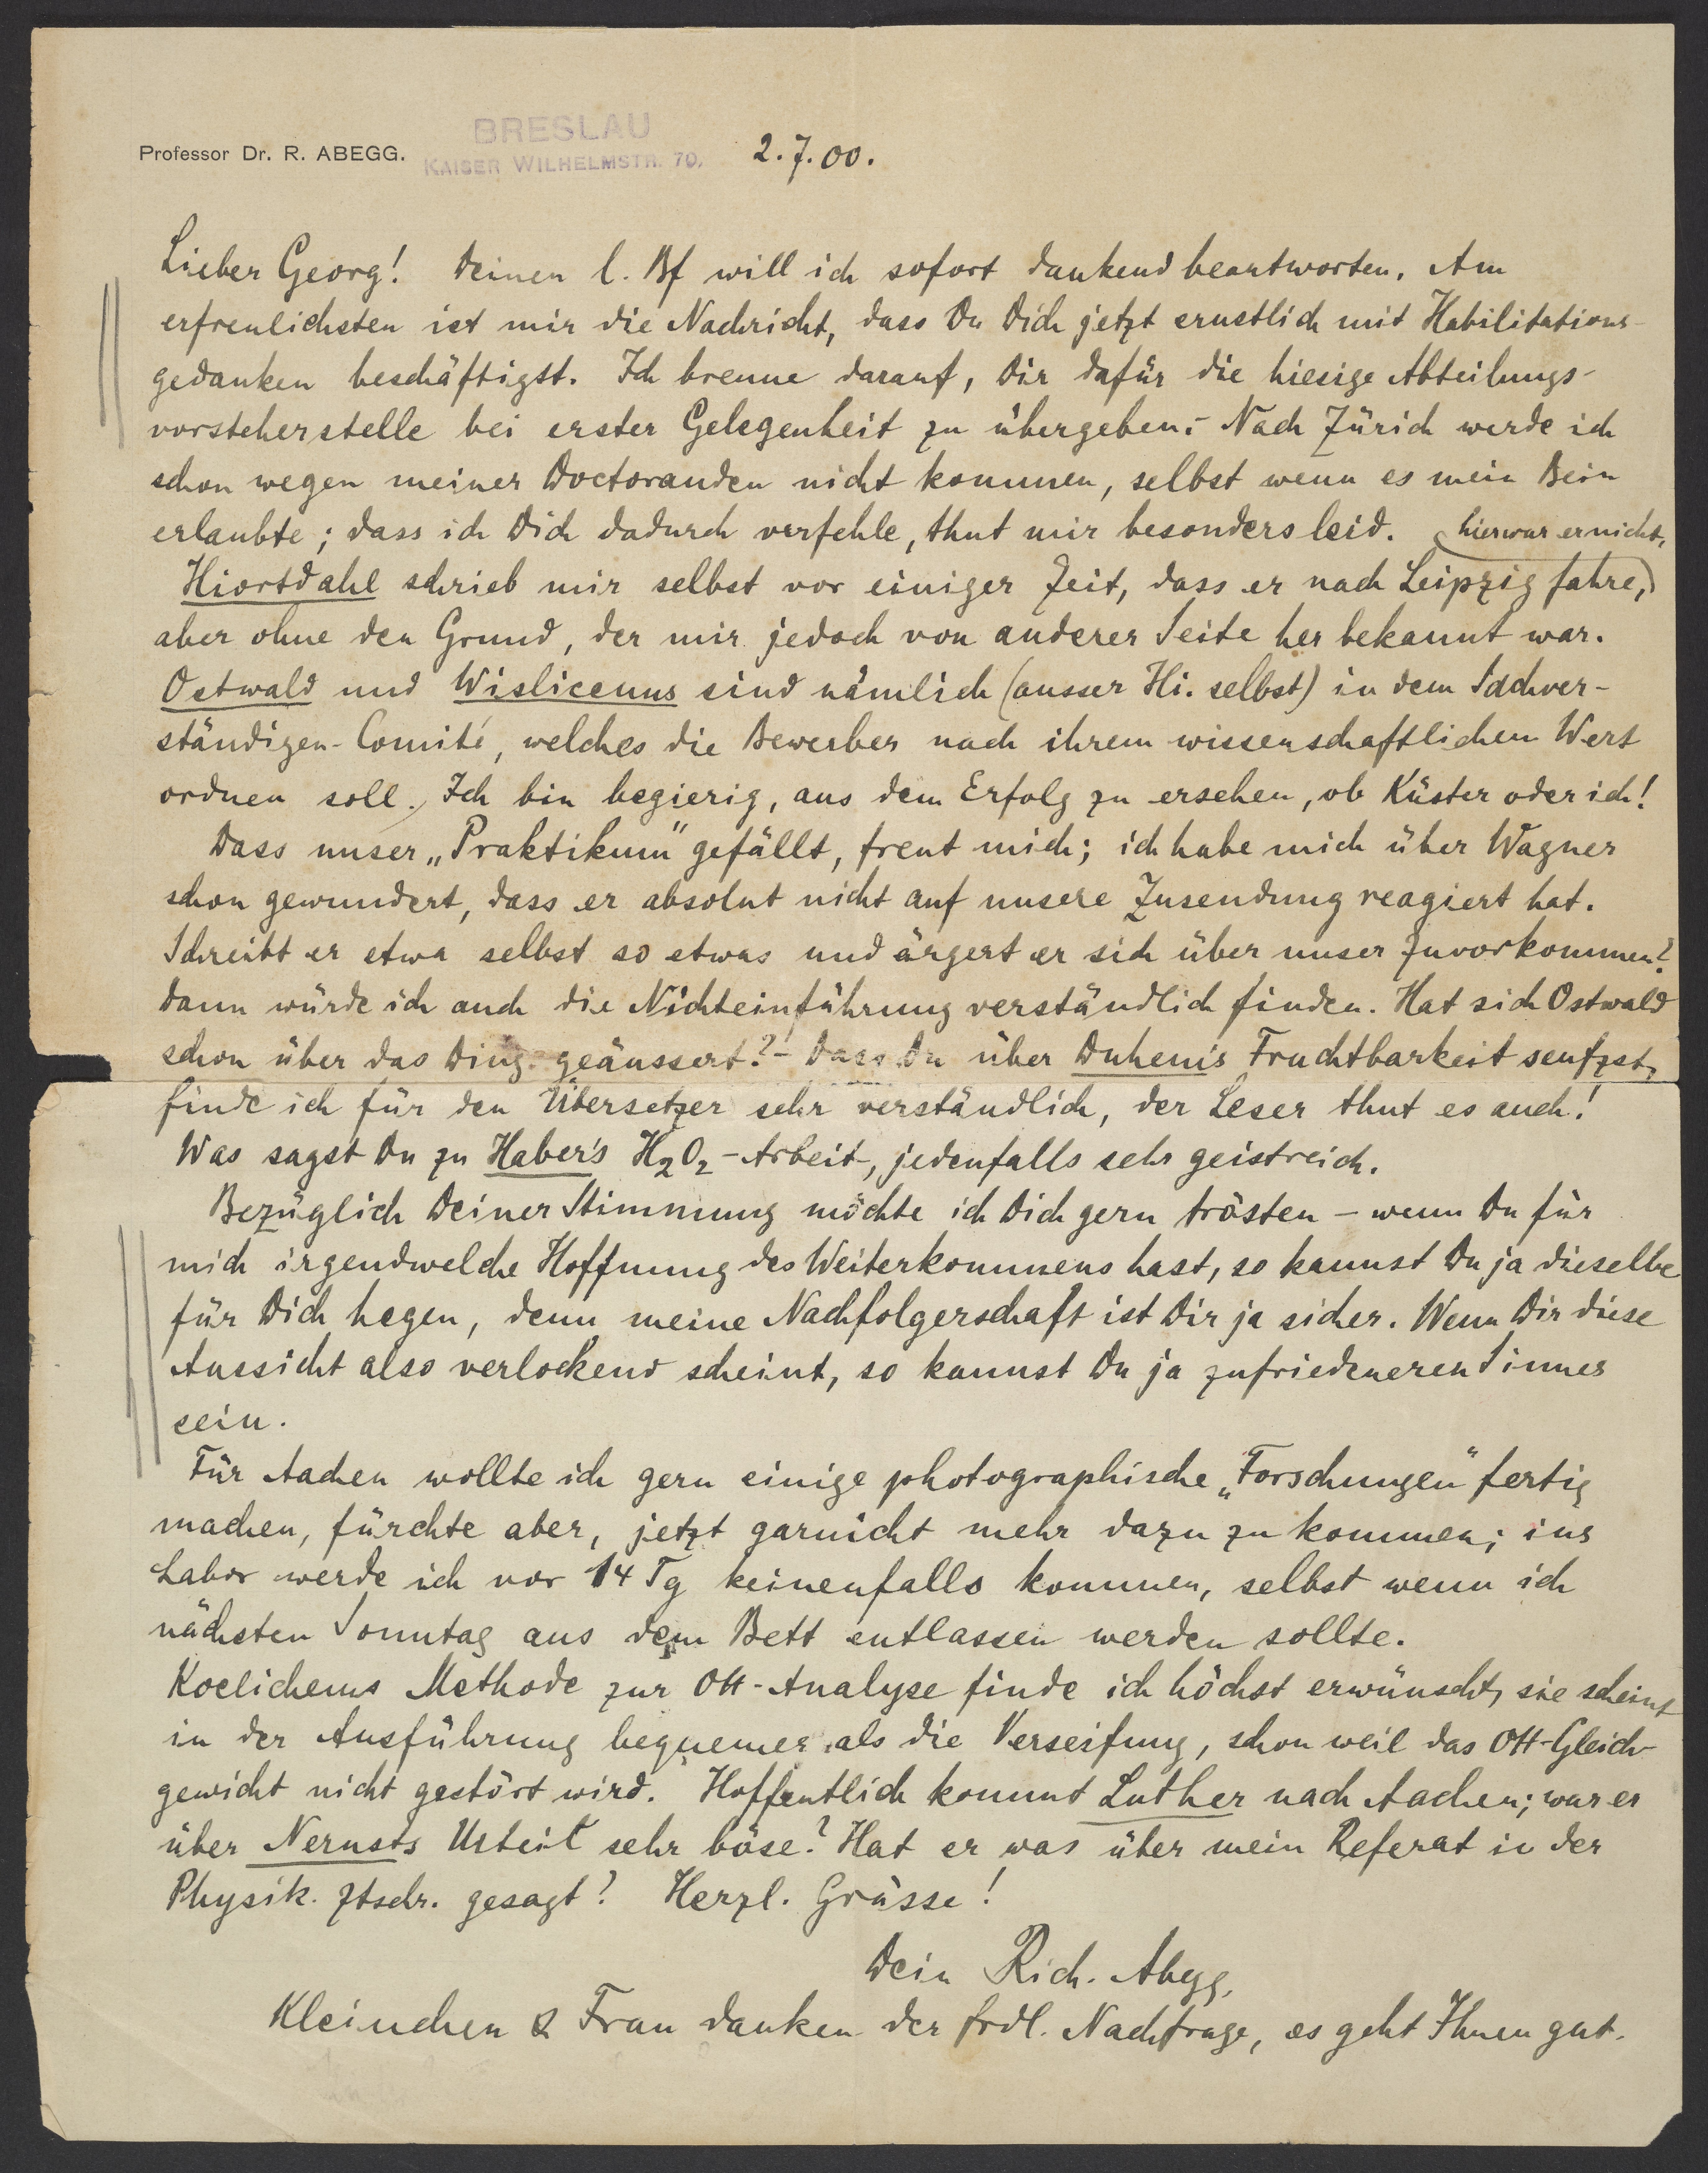 BRESLAU
Professor Dr. R. ABEGG. KAISER WILHELMSTR. 70. 2.7.00.
Lieber Georg! Deinen l. Bf will ich sofort dankend beantworten. Am
erfreulichsten ist mir die Nachricht, dass Du Dich jetzt ernstlich mit Habilitations-
gedanken beschäftigst. Ich brenne darauf, Dir dafür die hiesige Abteilungs-
vorsteherstelle bei erster Gelegenheit zu übergeben. – Nach Zürich werde ich
schon wegen meiner Doctoranden nicht kommen, selbst wenn es mein Bein
erlaubte; dass ich Dich dadurch verfehle, thut mir besonders leid. hier war er nicht,
Hiortdahl schrieb mir selbst vor einiger Zeit, dass er nach Leipzig fahre,
aber ohne den Grund, der mir jedoch von anderer Seite her bekannt war.
Ostwald und Wislicenus sind nämlich (ausser Hi. selbst) in dem Sachver-
ständigen-Comité, welches die Bewerber nach ihrem wissenschaftlichen Wert
ordnen soll. Ich bin begierig, aus dem Erfolg zu ersehen, ob Küster oder ich!
Dass unser „Praktikum" gefällt, freut mich; ich habe mich über Wagner
schon gewundert, dass er absolut nicht auf unsere Zusendung reagiert hat.
Schreibt er etwa selbst so etwas und ärgert er sich über unser Zuvorkommen?
Dann würde ich auch die Nichteinführung verständlich finden. Hat sich Ostwald
schon über das Ding geäussert? – Dass Du über Duhem's Fruchtbarkeit seufzst,
finde ich für den Übersetzer sehr verständlich, der Leser thut es auch!
Was sagst Du zu Haber's H₂O₂-Arbeit, jedenfalls sehr geistreich.
Bezüglich Deiner Stimmung möchte ich Dich gern trösten – wenn Du für
mich irgendwelche Hoffnung des Weiterkommens hast, so kannst Du ja dieselbe
für Dich hegen, denn meine Nachfolgerschaft ist Dir ja sicher. Wenn Dir diese
Aussicht also verlockend scheint, so kannst Du ja zufriedeneren Sinnes
sein.
Für Aachen wollte ich gern einige photographische „Forschungen" fertig
machen, fürchte aber, jetzt garnicht mehr dazu zu kommen; ins
Labor werde ich vor 14 Tg keinenfalls kommen, selbst wenn ich
nächsten Sonntag aus dem Bett entlassen werden sollte.
Koelichens Methode zur OH-Analyse finde ich höchst erwünscht, sie scheint
in der Ausführung bequemer als die Verseifung, schon weil das OH-Gleich-
gewicht nicht gestört wird. Hoffentlich kommt Luther nach Aachen; war er
über Nernsts Urteil sehr böse? Hat er was über mein Referat in der
Physik. Ztschr. gesagt? Herzl. Grüsse!
Dein Rich. Abegg.
Kleinchen & Frau danken der frdl. Nachfrage, es geht Ihnen gut.